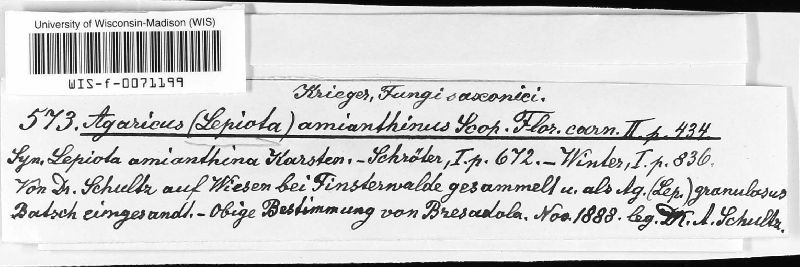 University of Wisconsin-Madison (WIS)
WIS-f-0071199
Krieger, Fungi saxonici.
573. Agaricus (Lepiota) amianthinus Scop. Flor. carn. II p. 434
Syn. Lepiota amianthina Karsten. – Schröter, I. p. 672. – Winter, I. p. 836.
Von Dr. Schultz auf Wiesen bei Finsterwalde gesammelt u. als Ag. (Lep.) granulosus
Batsch eingesandt. – Obige Bestimmung von Bresadola. Nov. 1888. leg. Dr. A. Schultz.